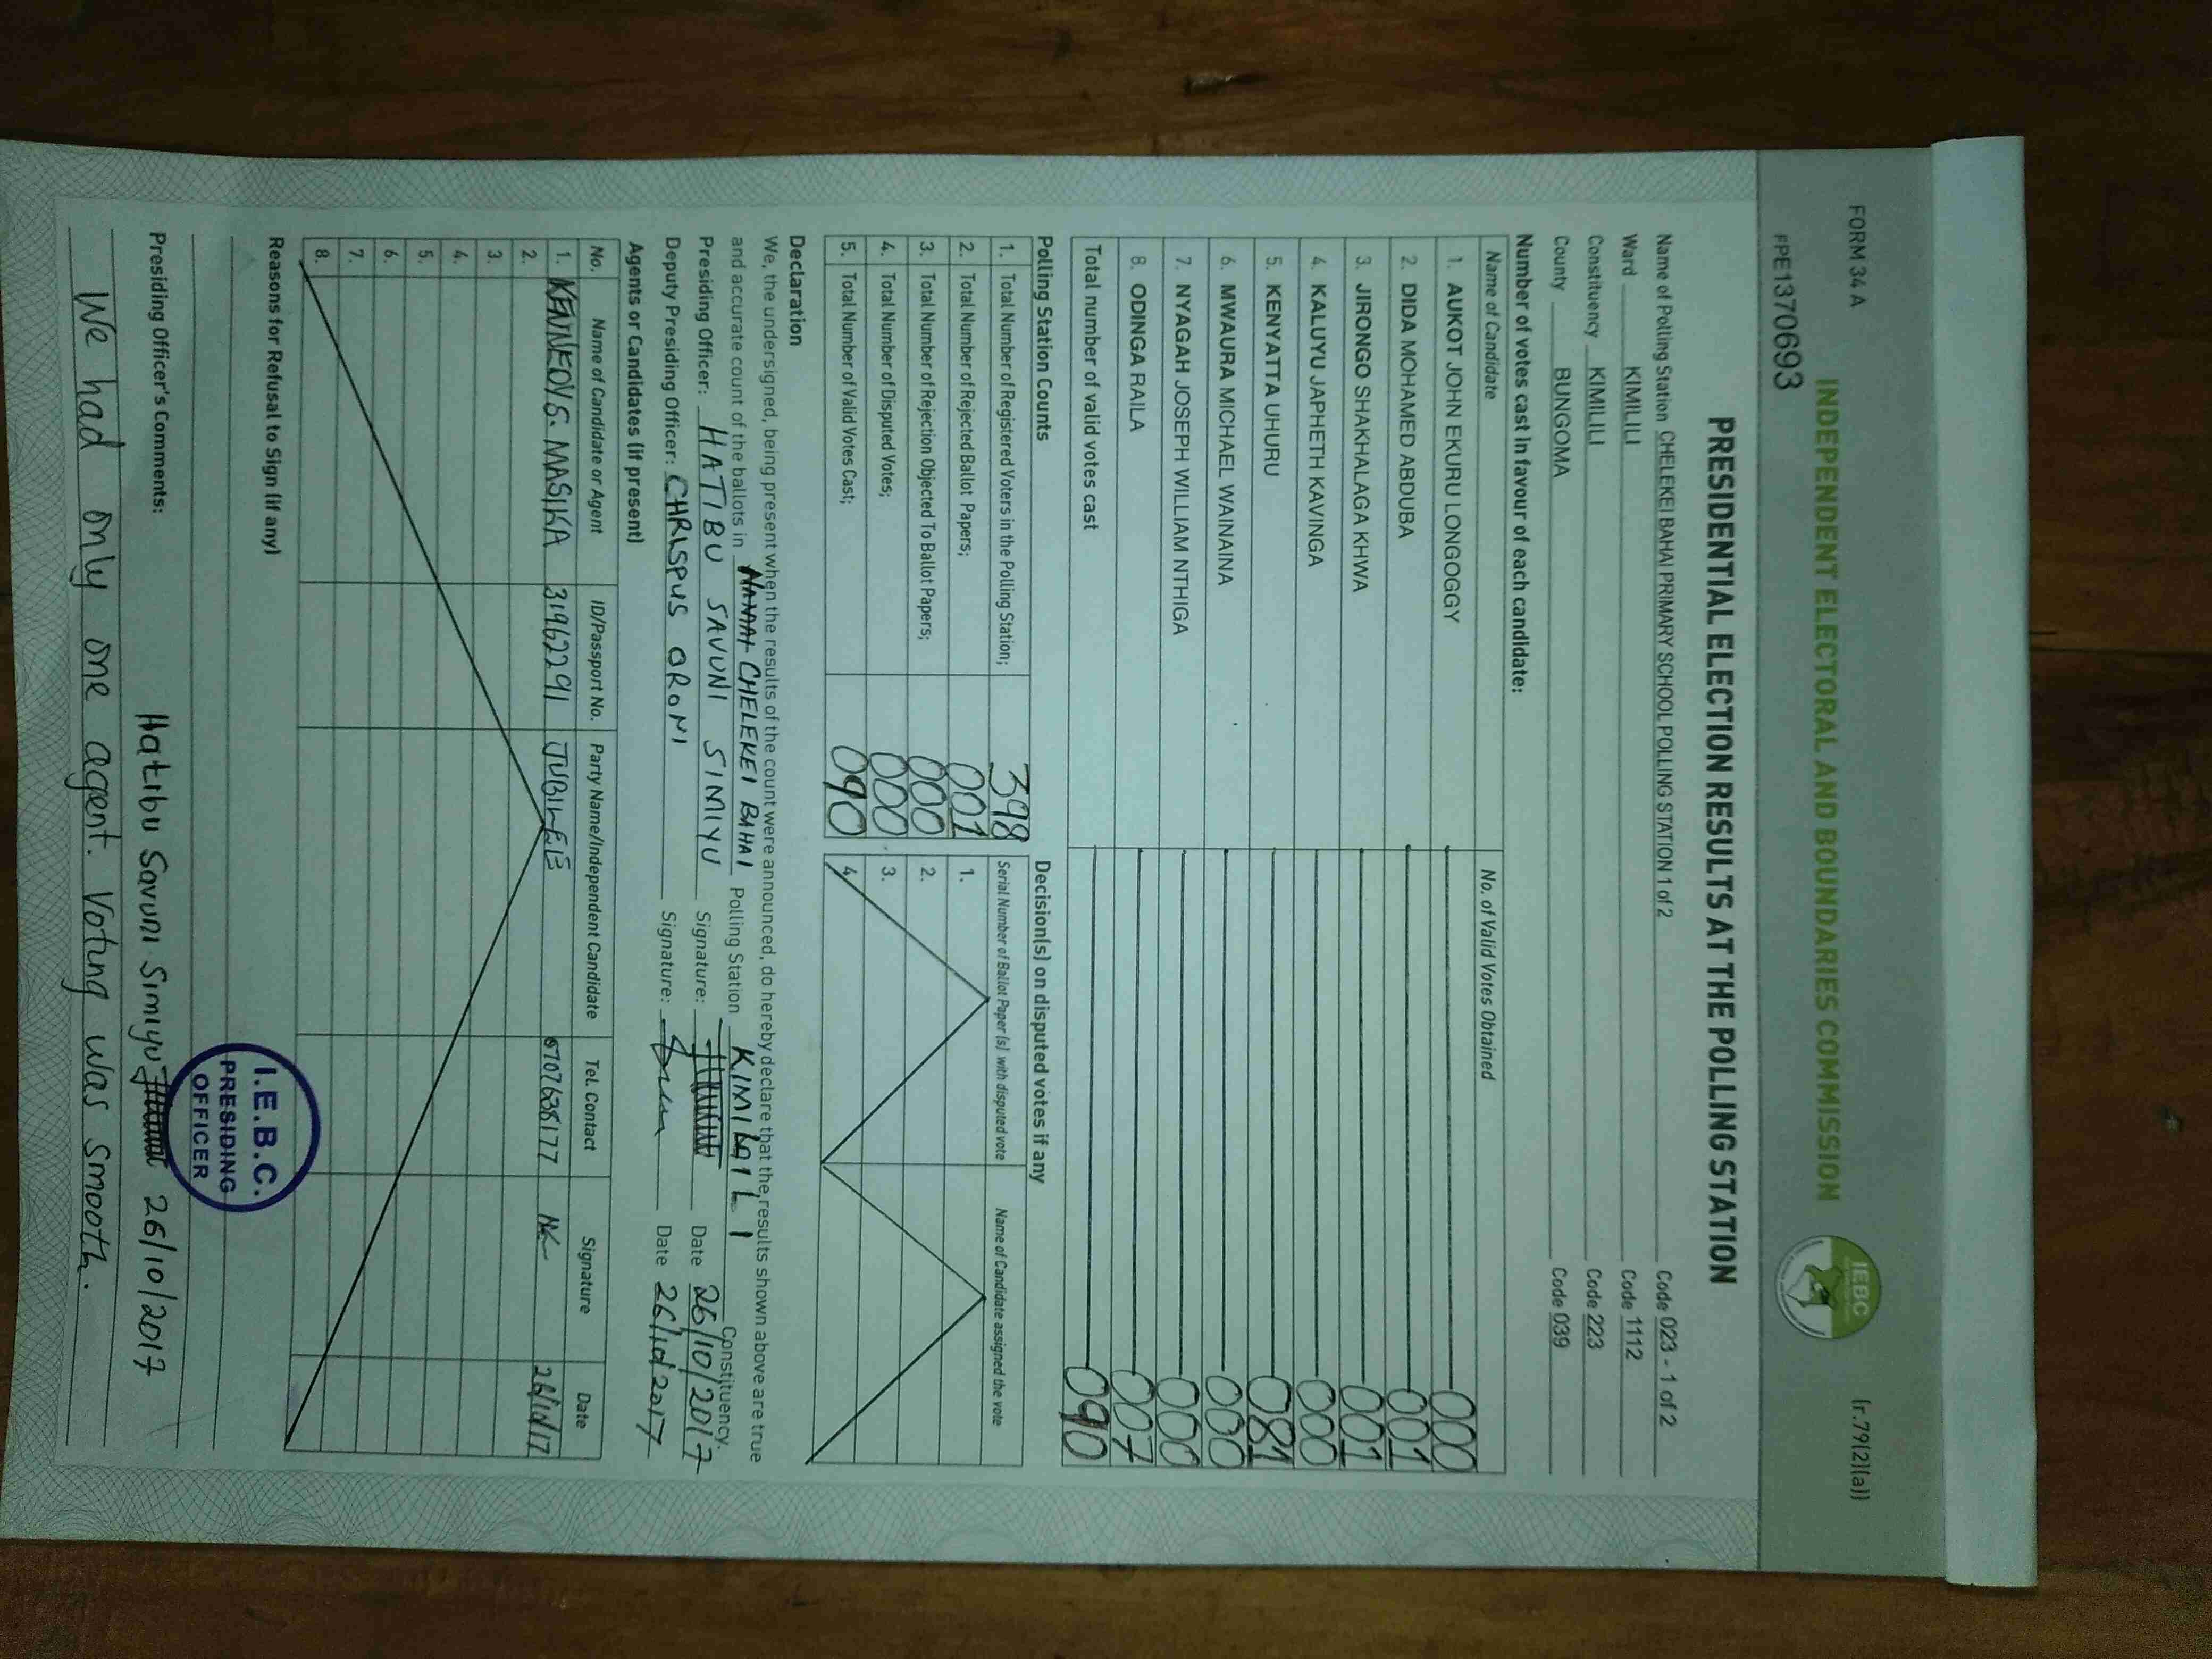 FORM 34 A
(r.79(2)(a))
INDEPENDENT ELECTORAL AND BOUNDARIES COMMISSION
IEBC
PPE1370693
PRESIDENTIAL ELECTION RESULTS AT THE POLLING STATION
Name of Polling Station CHELEKEI BAHAI PRIMARY SCHOOL POLLING STATION 1 of 2 Code 023 - 1 of 2
Ward KIMILILI Code 1112
Constituency KIMILILI Code 223
County BUNGOMA Code 039
Number of votes cast in favour of each candidate:
Name of Candidate No. of Valid Votes Obtained
1. AUKOT JOHN EKURU LONGOGGY 000
2. DIDA MOHAMED ABDUBA 001
3. JIRONGO SHAKHALAGA KHWA 001
4. KALUYU JAPHETH KAVINGA 000
5. KENYATTA UHURU 081
6. MWAURA MICHAEL WAINAINA 000
7. NYAGAH JOSEPH WILLIAM NTHIGA 000
8. ODINGA RAILA 007
Total number of valid votes cast 090
Polling Station Counts
1. Total Number of Registered Voters in the Polling Station; 398
2. Total Number of Rejected Ballot Papers; 001
3. Total Number of Rejection Objected To Ballot Papers; 000
4. Total Number of Disputed Votes; 000
5. Total Number of Valid Votes Cast; 090
Decision(s) on disputed votes if any
Serial Number of Ballot Paper(s) with disputed vote Name of Candidate assigned the vote
1.
2.
3.
4.
Declaration
We, the undersigned, being present when the results of the count were announced, do hereby declare that the results shown above are true
and accurate count of the ballots in CHELEKEI BAHAI Polling Station KIMILILI Constituency.
Presiding Officer: HATIBU SAVUNI SIMIYU Signature: Date 26/10/2017
Deputy Presiding Officer: CHRISPUS ORONI Signature: Date 26/10/2017
Agents or Candidates (if present)
No. Name of Candidate or Agent ID/Passport No. Party Name/Independent Candidate Tel. Contact Signature Date
1. KENNEDY S. MASIKA 31962291 JUBILEE 0707638177 26/10/17
2.
3.
4.
5.
6.
7.
8.
Reasons for Refusal to Sign (if any)
I.E.B.C.
PRESIDING
OFFICER
Presiding Officer's Comments: Hatibu Savuni Simiyu 26/10/2017
We had only one agent. Voting was smooth.